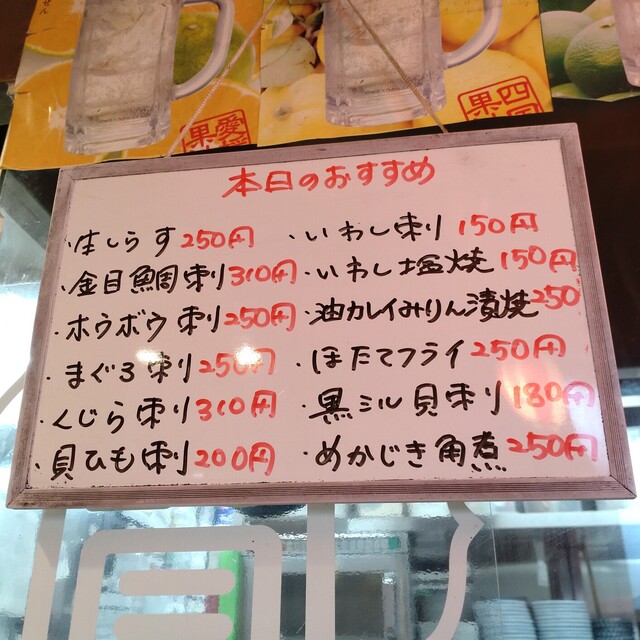 せん
愛媛
果
四国
果
本日のおすすめ
・生しらす250円
・金目鯛刺り310円
・ホウボウ刺り250円
・まぐろ刺り250円
・くじら刺り310円
・貝ひも刺り200円
・いわし刺り150円
・いわし塩焼150円
・油カレイみりん漬焼250
・ほたてフライ250円
・黒ミル貝刺り180円
・めかじき角煮250円